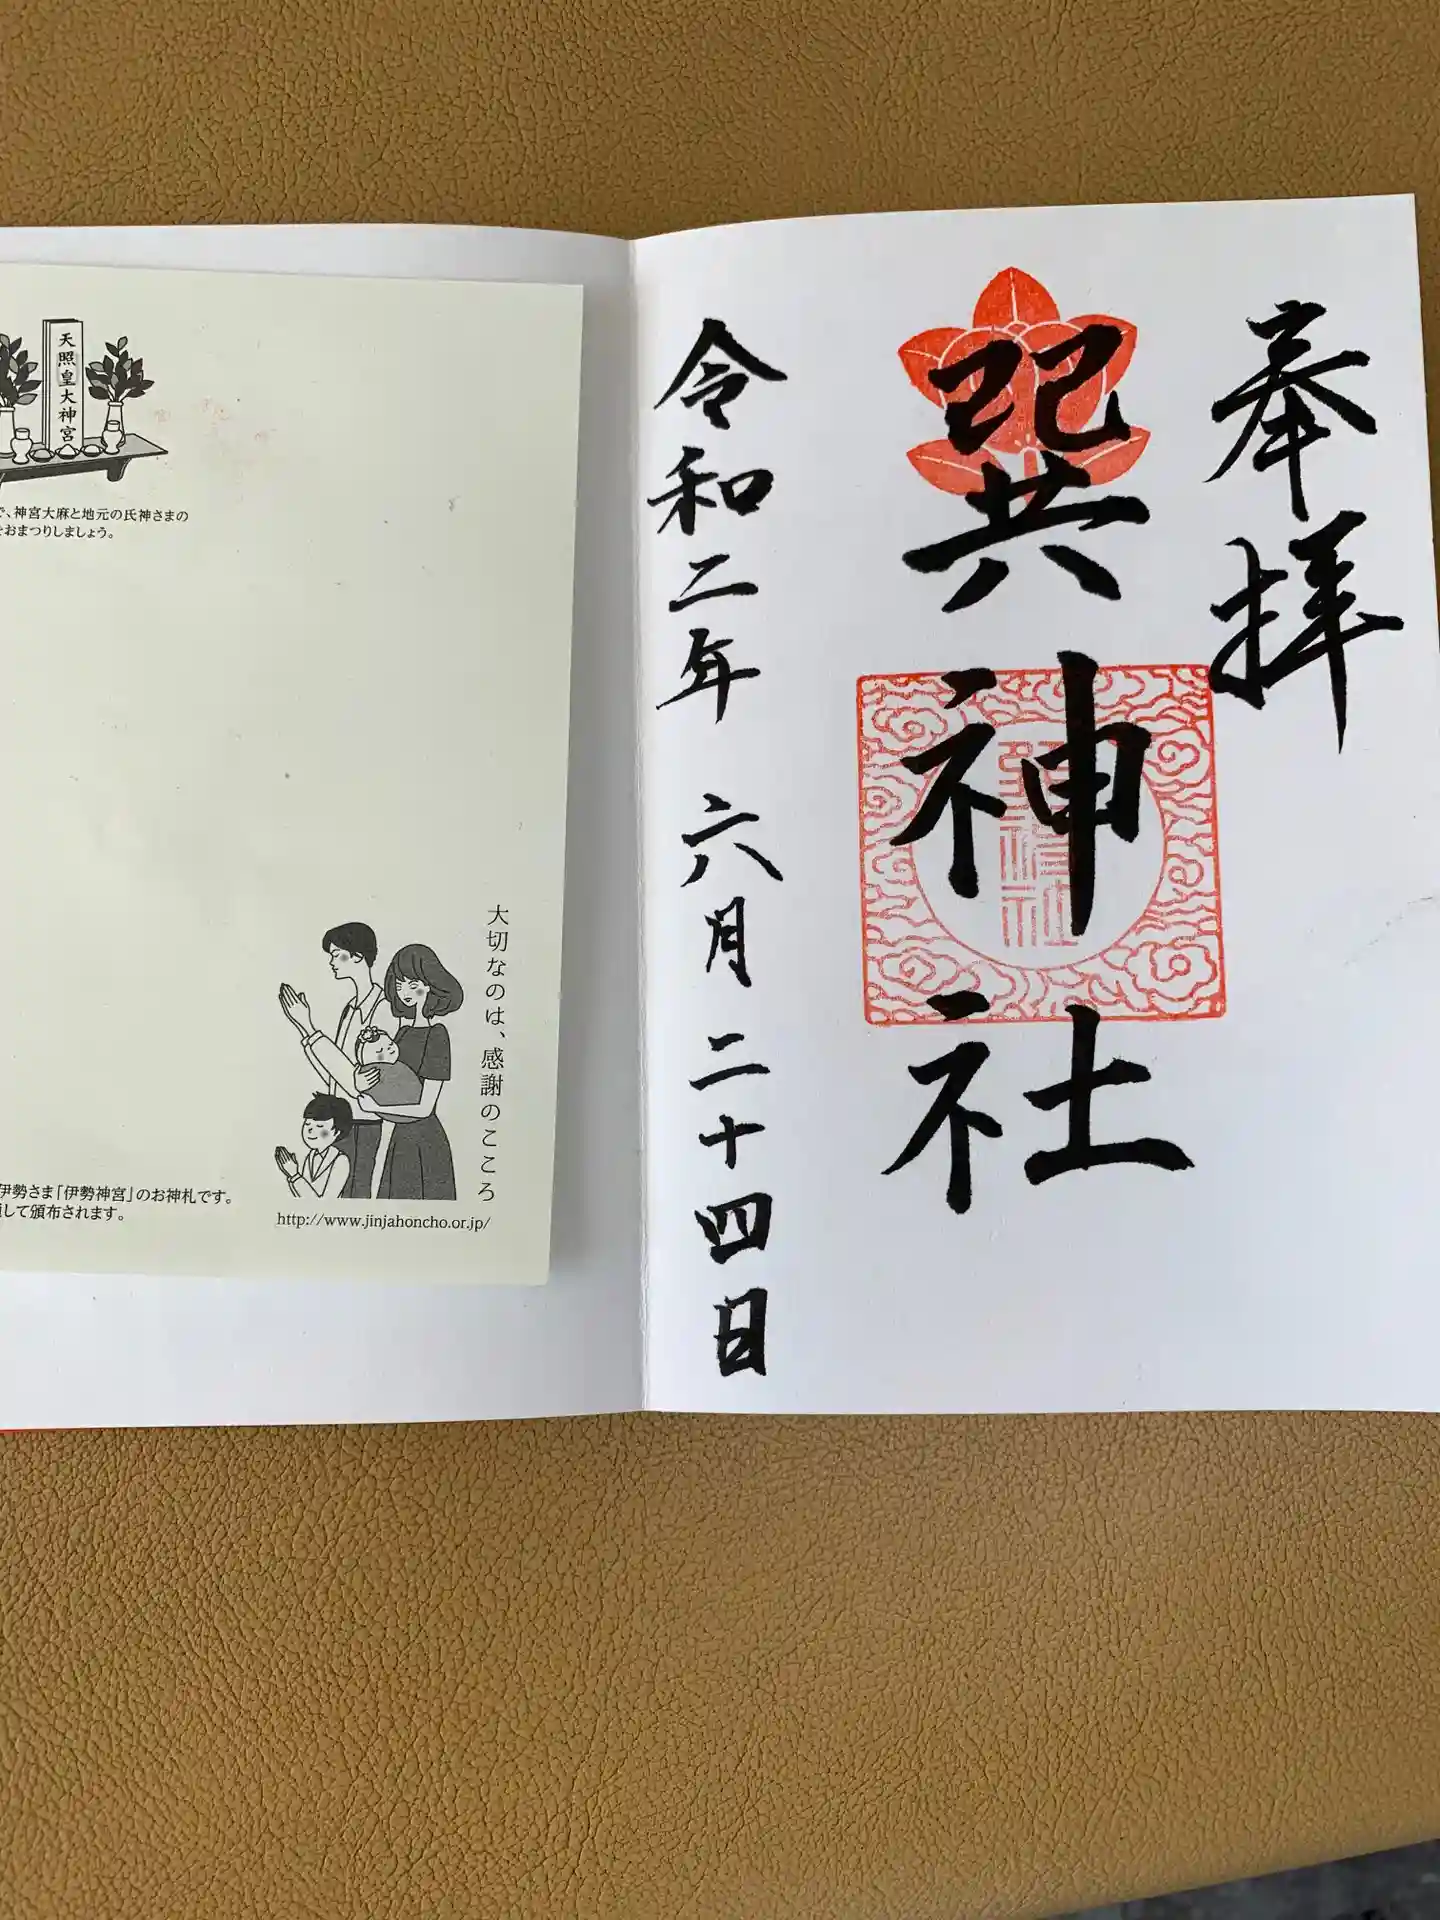 奉拝
巽神社
令和二年 六月二十四日
巽神社
天照皇大神宮
で、神宮大麻と地元の氏神さまの
をおまつりしましょう。
大切なのは、感謝のこころ
伊勢さま「伊勢神宮」のお神札です。
して頒布されます。
http://www.jinjahoncho.or.jp/